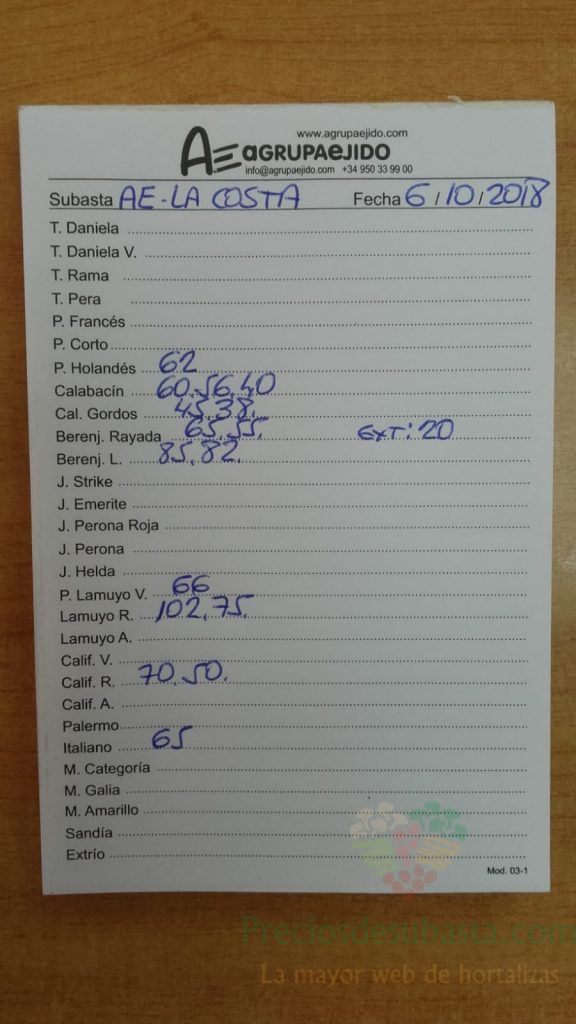 www.agrupaejido.com
AE AGRUPAEJIDO
info@agrupaejido.com +34 950 33 99 00
Subasta AE-LA COSTA Fecha 6/10/2018
T. Daniela
T. Daniela V.
T. Rama
T. Pera
P. Francés
P. Corto
P. Holandés 62
Calabacín 60.56.40
Cal. Gordos 45.38.
Berenj. Rayada 65.55. EXT: 20
Berenj. L. 85.82.
J. Strike
J. Emerite
J. Perona Roja
J. Perona
J. Helda
P. Lamuyo V. 66
Lamuyo R. 102.75.
Lamuyo A.
Calif. V.
Calif. R. 70.50.
Calif. A.
Palermo
Italiano 65
M. Categoría
M. Galia
M. Amarillo
Sandía
Extrío
Mod. 03-1
Preciosdesubasta.com
La mayor web de hortalizas